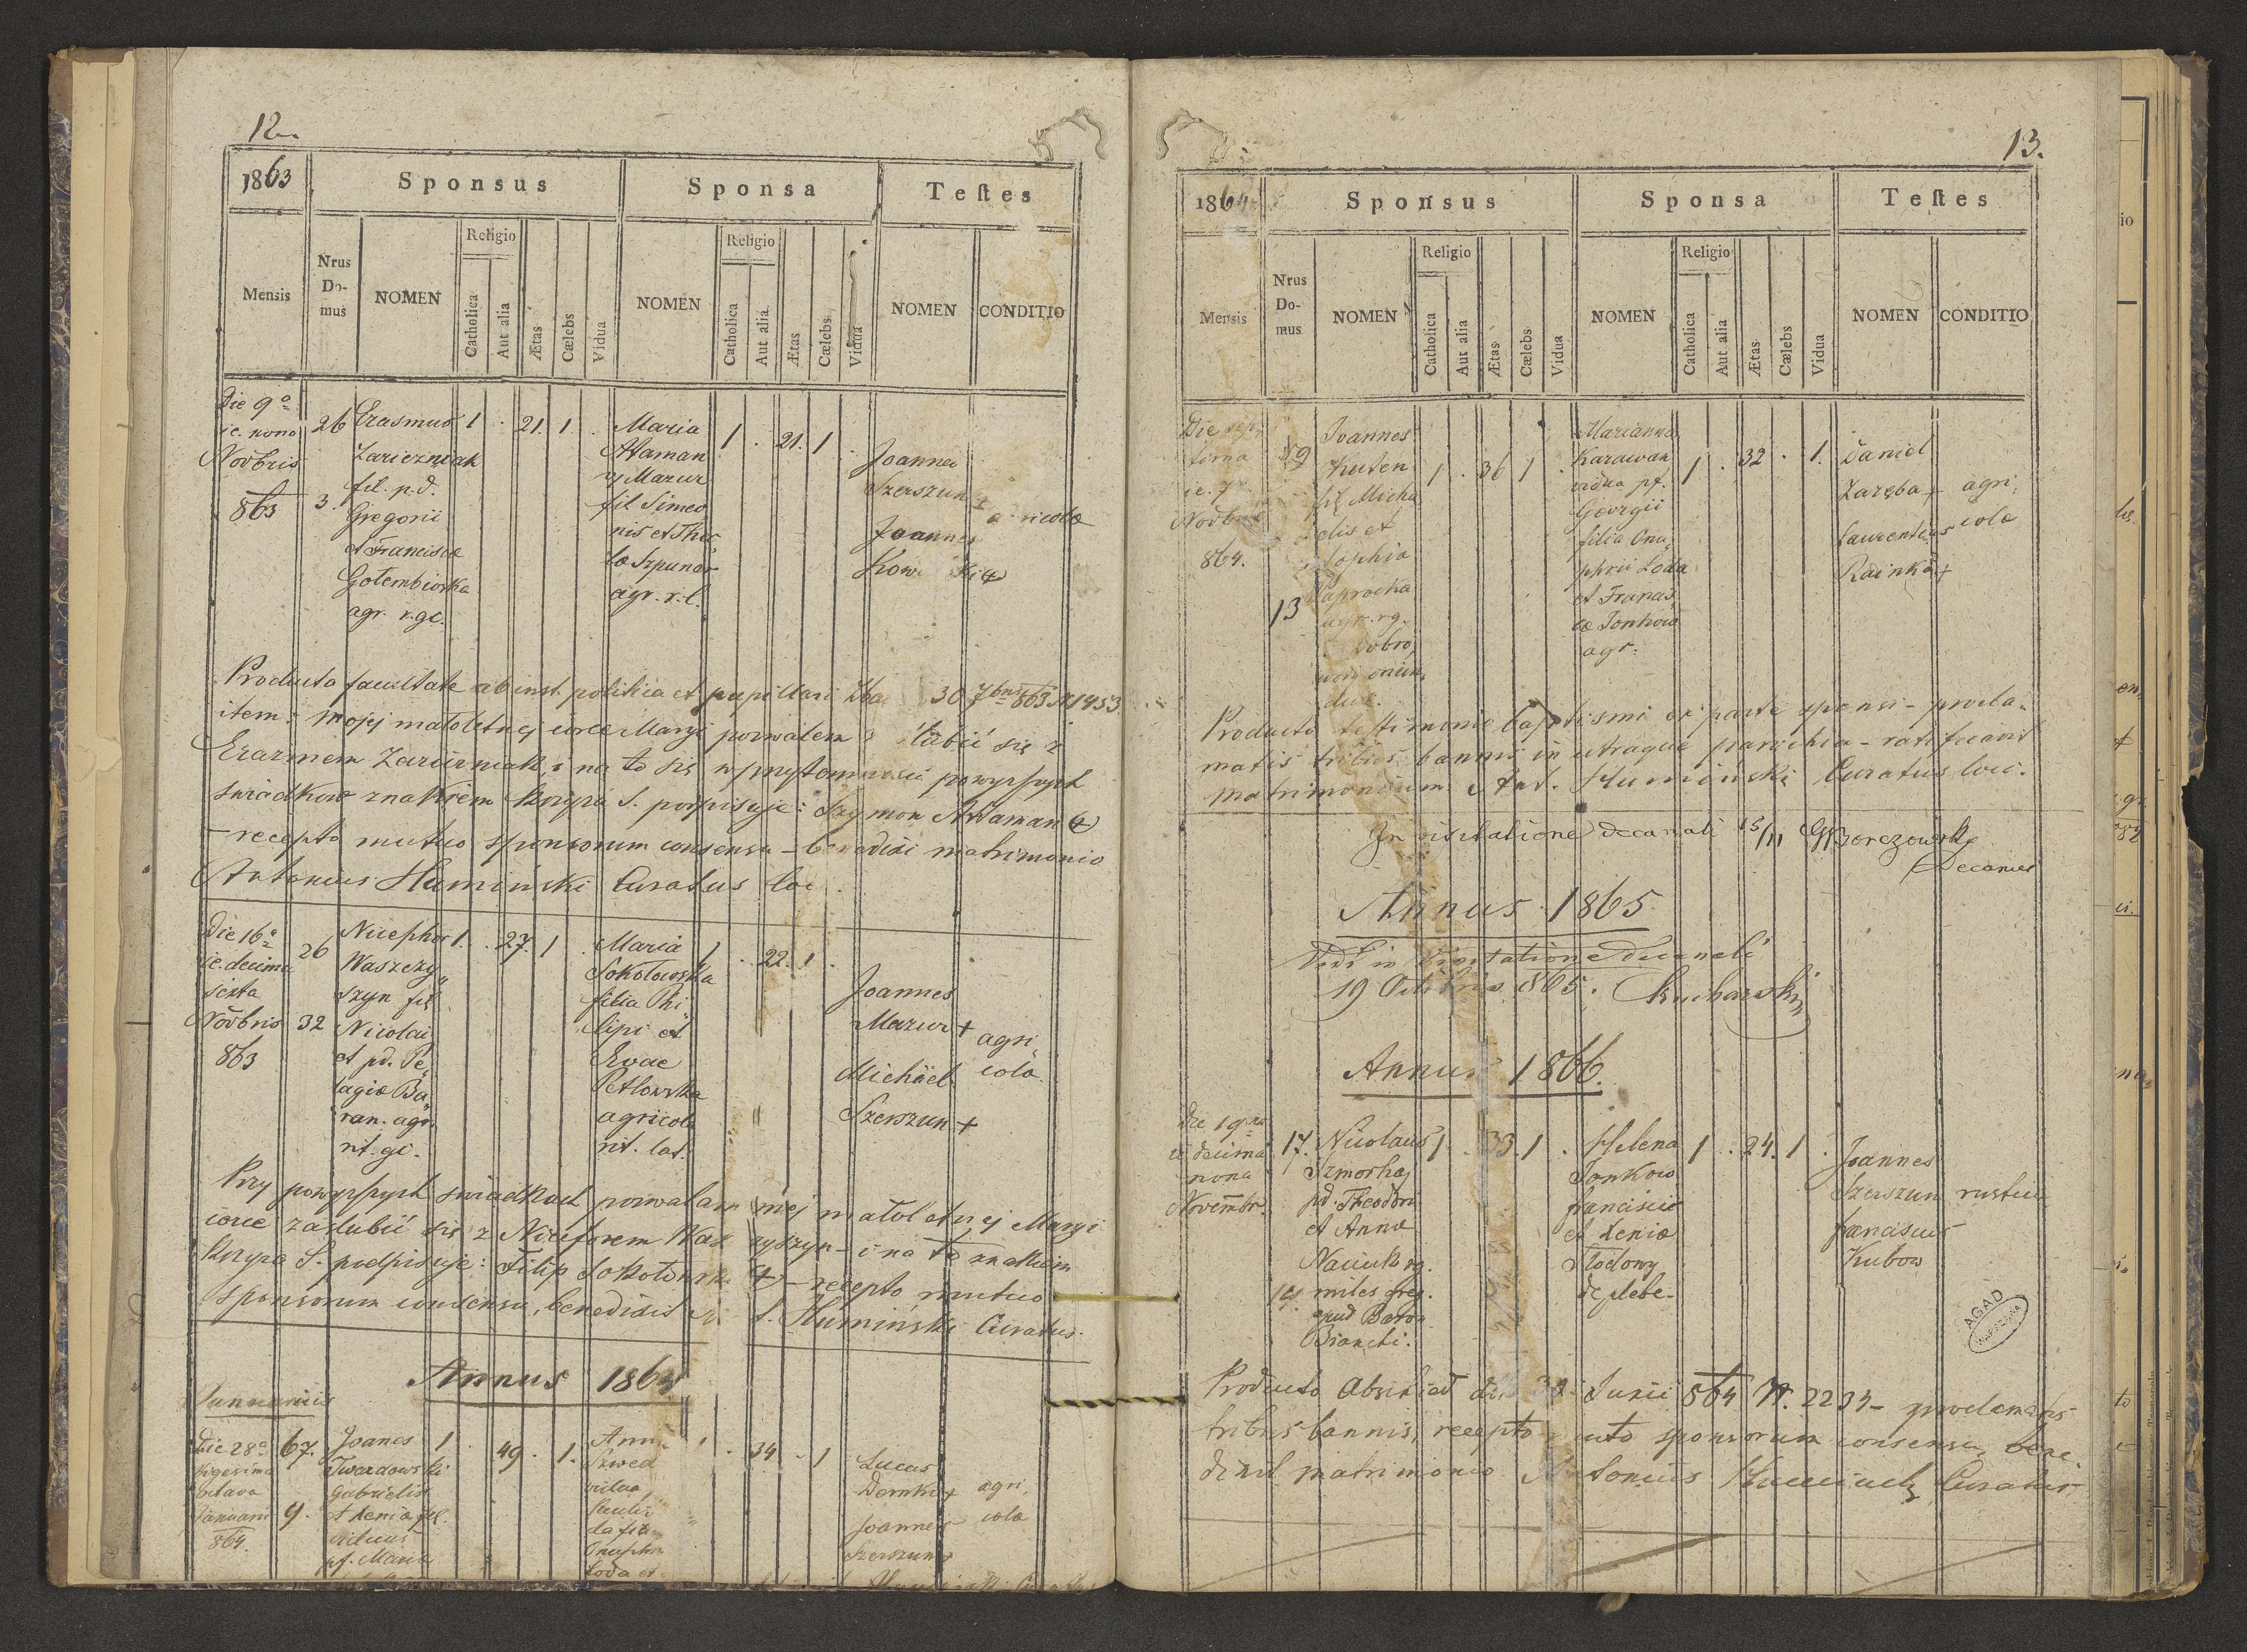 12.
1863
Sponsus
Sponsa
Teſtes
Mensis
Nrus Do-mus
NOMEN
Religio
Catholica
Aut alia
Ætas
Cælebs
Vidua
NOMEN
Religio
Catholica
Aut alia
Ætas
Cælebs
Vidua
NOMEN
CONDITIO
Die 9a
ie. nona
Novbris
863
26
3.
Erasmus
Zariczniak
fil. p.d.
Gregorii
et Franciscæ
Gołembiowska
agr. r.gc.
1 . 21. 1 .
Maria
Attaman
v Mazur
fil Simeo
nis et Thec
la Szpunar
agr. r.l.
1 . 21. 1 .
Joannes
Szerszun +
Joannes
Kow ski +
agricolæ
Producta facultate ab inst. politica et pupillari Zba 30 7bris 863 N 1953
item: Mojej małoletniej córce Maryi pozwalam ślubić się z
Erazmem Zariczniak, i na to się w przytomności powyższych
świadków znakiem krzyża S. podpisuje: Szymon Attaman +
– recepto mutuo sponsorum consensu – benedixi matrimonio
Antonius Humiński Curatus loc.
Die 16a
ie. decima
sexta
Novbris
863
26
32
Nicephor
Waszczy
szyn fil
Nicolai
et pd. Pe
lagiæ Ba
ran. agr.
rit. gc.
1 . 27. 1 .
Maria
Sokołowska
filia Phi
lipi et
Evae
Petlowska
agricola
rit. lat.
1 . 22. 1 .
Joannes
Mazur +
Michäel
Szerszun +
agri
cola.
Przy powyższych świadkach pozwalam mej małoletniej Maryi
córce zaślubić się z Niceforem Was zyszyn – i na to znakiem
krzyża S. podpisuje: Filip Sokołowski + – recepto mutuo
sponsorum consensu, benedixit M. A. Humiński Curatus.
Annus 1864
Januariis
Die 28a
vigesima
octava
Januarii
864.
67.
9.
Joanes
Twardowski
Gabrielis
et Xenia fil.
viduus
pf. Maria
1 . 49 . 1.
Anna
Szwed
vidua
Pauli
la fil
Onuphr
Łoda et
1 . 34 . 1
Lucas
Demki +
Joannes
Szerszun +
agri
cola
13.
1864
Sponsus
Sponsa
Teſtes
Mensis
Nrus Do-mus
NOMEN
Religio
Catholica
Aut alia
Ætas
Cælebs
Vidua
NOMEN
Religio
Catholica
Aut alia
Ætas
Cælebs
Vidua
NOMEN
CONDITIO
Die sep
tima
ie. 7
Novbris
864.
59
13
Joannes
Kuten
fil Micha
elis et
Sophia
Paprocha
agr. rg.
Dobro
1 . 36 1 .
Marianna
Karawan
vidua pf.
Georgii
filia Onu
phrii Łoda
et Francis
cæ Jonkow
agr:
1 . 32 . 1.
Daniel
Zaręba +
Laurentius
Rainka +
agri
cola
Producto testimonio baptismi ex parte sponsi – procla
matis tribus bannis in utraque parochia – ratificavit
matrimonium Ant. Humiński Curatus loci.
In visitatione decanali 15/11 GBorczowski
Decanus
Annus 1865
Vidi in Visitatione decanali
19 Octobris 865. Kucharski
Annus 1866.
Die 19na
ie decima
nona
Novembr.
17.
19.
Nicolaus
Szmorhaj
pd. Theodori
et Anna
Naciuk rg.
miles greg.
apud Baron
Bianchi.
1 . 33. 1 .
Helena
Jonkow
francisci
et Xenia
Stodowy
de plebe.
1 . 24. 1 .
Joannes
Szerszun
franciscus
Kubow
rustici
AGAD
WARSZAWA
Producto Abschied Junii 864 N. 2234 – proclamatis
tribus bannis, recepto mutuo sponsorum consensu bene
dixit matrimonio Antonius Curatus